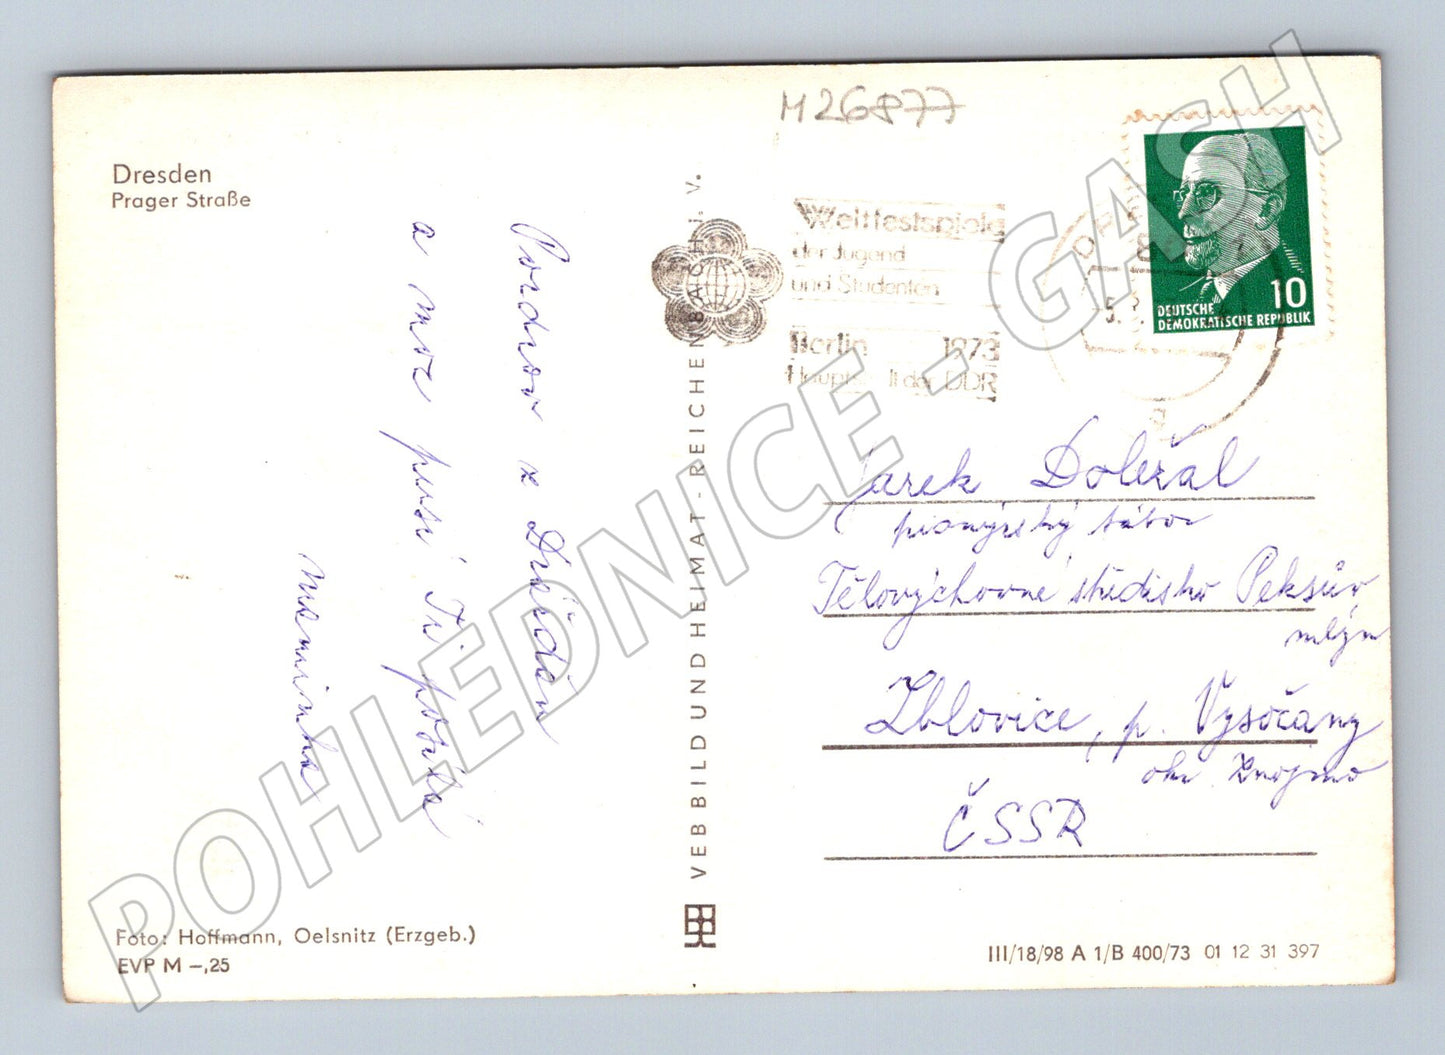 M26877
Dresden
Prager Straße
Pozdrav z Drážďan
a moc pusí Ti posílá
maminka
VEB BILD UND HEIMAT - REICHENBACH I. V.
Weltfestspiele
der Jugend
und Studenten
Berlin 1973
Hauptstadt der DDR
10
DEUTSCHE
DEMOKRATISCHE REPUBLIK
Jarek Doležal
pionýrský tábor
Tělovýchovné středisko Peksův
mlýn
Zblovice, p. Vysočany
okr. Znojmo
ČSSR
Foto: Hoffmann, Oelsnitz (Erzgeb.)
EVP M –,25
III/18/98 A 1/B 400/73 01 12 31 397
POHLEDNICE - GASH